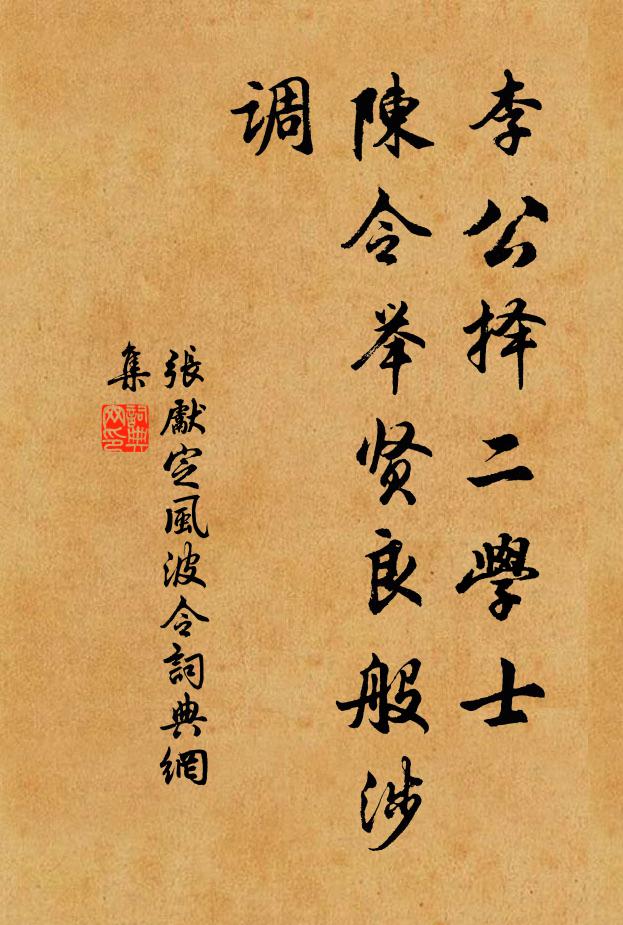 李公择二學士
陳令举贤良般涉
调
張獻定風波令詞典網
集
詞典
网印